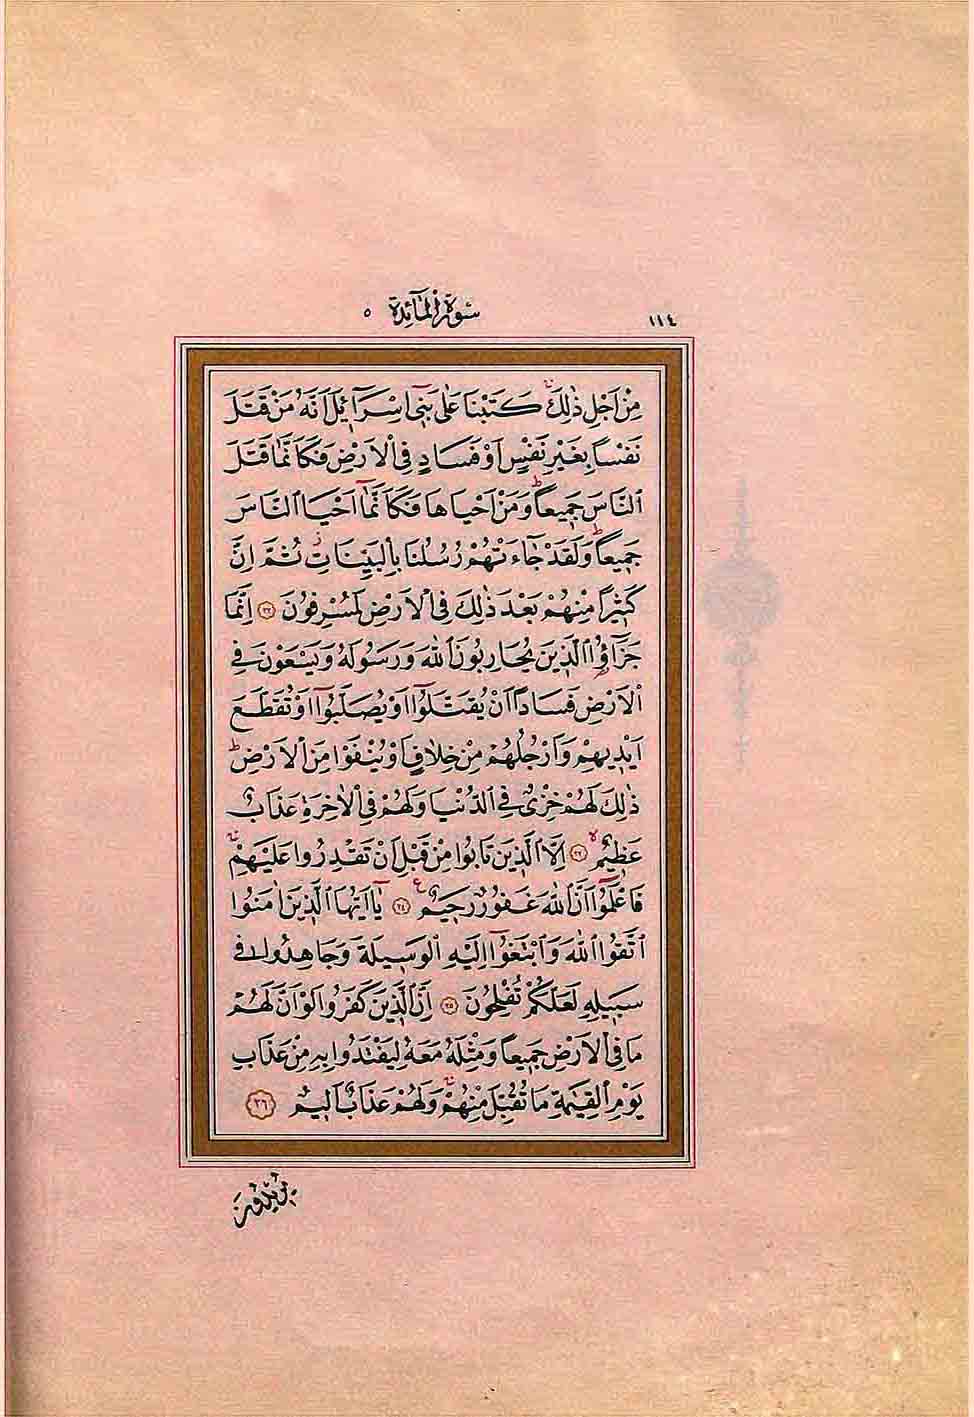 ١١٤
سُورَةُ الْمَائِدَةِ ٥
مِنْ اَجْلِ ذٰلِكَۛ كَتَبْنَا عَلٰى بَنٖٓى اِسْرَٓائٖلَ اَنَّهُ مَنْ قَتَلَ
نَفْسًا بِغَيْرِ نَفْسٍ اَوْ فَسَادٍ فِى الْاَرْضِ فَكَاَنَّمَا قَتَلَ
النَّاسَ جَمٖيعًاؕ وَمَنْ اَحْيَاهَا فَكَاَنَّمَٓا اَحْيَا النَّاسَ
جَمٖيعًاؕ وَلَقَدْ جَٓاءَتْهُمْ رُسُلُنَا بِالْبَيِّنَاتِؗ ثُمَّ اِنَّ
كَثٖيرًا مِنْهُمْ بَعْدَ ذٰلِكَ فِى الْاَرْضِ لَمُسْرِفُونَ ٣٢ اِنَّمَا
جَزٰٓؤُا الَّذٖينَ يُحَارِبُونَ اللّٰهَ وَرَسُولَهُ وَيَسْعَوْنَ فِى
الْاَرْضِ فَسَادًا اَنْ يُقَتَّلُٓوا اَوْ يُصَلَّبُٓوا اَوْ تُقَطَّعَ
اَيْدٖيهِمْ وَاَرْجُلُهُمْ مِنْ خِلَافٍ اَوْ يُنْفَوْا مِنَ الْاَرْضِؕ
ذٰلِكَ لَهُمْ خِزْىٌ فِى الدُّنْيَا وَلَهُمْ فِى الْاٰخِرَةِ عَذَابٌ
عَظٖيمٌۙ ٣٣ اِلَّا الَّذٖينَ تَابُوا مِنْ قَبْلِ اَنْ تَقْدِرُوا عَلَيْهِمْۚ
فَاعْلَمُٓوا اَنَّ اللّٰهَ غَفُورٌ رَحٖيمٌ ع ٣٤ يَٓا اَيُّهَا الَّذٖينَ اٰمَنُوا
اتَّقُوا اللّٰهَ وَابْتَغُٓوا اِلَيْهِ الْوَسٖيلَةَ وَجَاهِدُوا فٖى
سَبٖيلِهٖ لَعَلَّكُمْ تُفْلِحُونَ ٣٥ اِنَّ الَّذٖينَ كَفَرُوا لَوْ اَنَّ لَهُمْ
مَا فِى الْاَرْضِ جَمٖيعًا وَمِثْلَهُ مَعَهُ لِيَفْتَدُوا بِهٖ مِنْ عَذَابِ
يَوْمِ الْقِيٰمَةِ مَا تُقُبِّلَ مِنْهُمْۚ وَلَهُمْ عَذَابٌ اَلٖيمٌ ٣٦
يُرٖيدُونَ